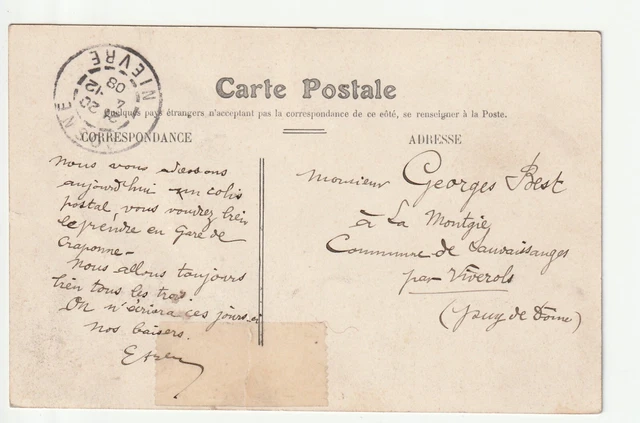 Carte Postale
Quelques pays étrangers n'acceptant pas la correspondance de ce côté, se renseigner à la Poste.
CORRESPONDANCE
ADRESSE
NIEVRE
12
08
20
Nous vous adressons
aujourd'hui un colis
postal, vous voudrez bien
le prendre en Gare de
Craponne -
Nous allons toujours
bien tous les trois.
On n'écrira ces jours-ci
Nos baisers.
Monsieur Georges Best
à La Montgie
Commune de Sauvaissanges
par Viverols
(Puy de Dome)